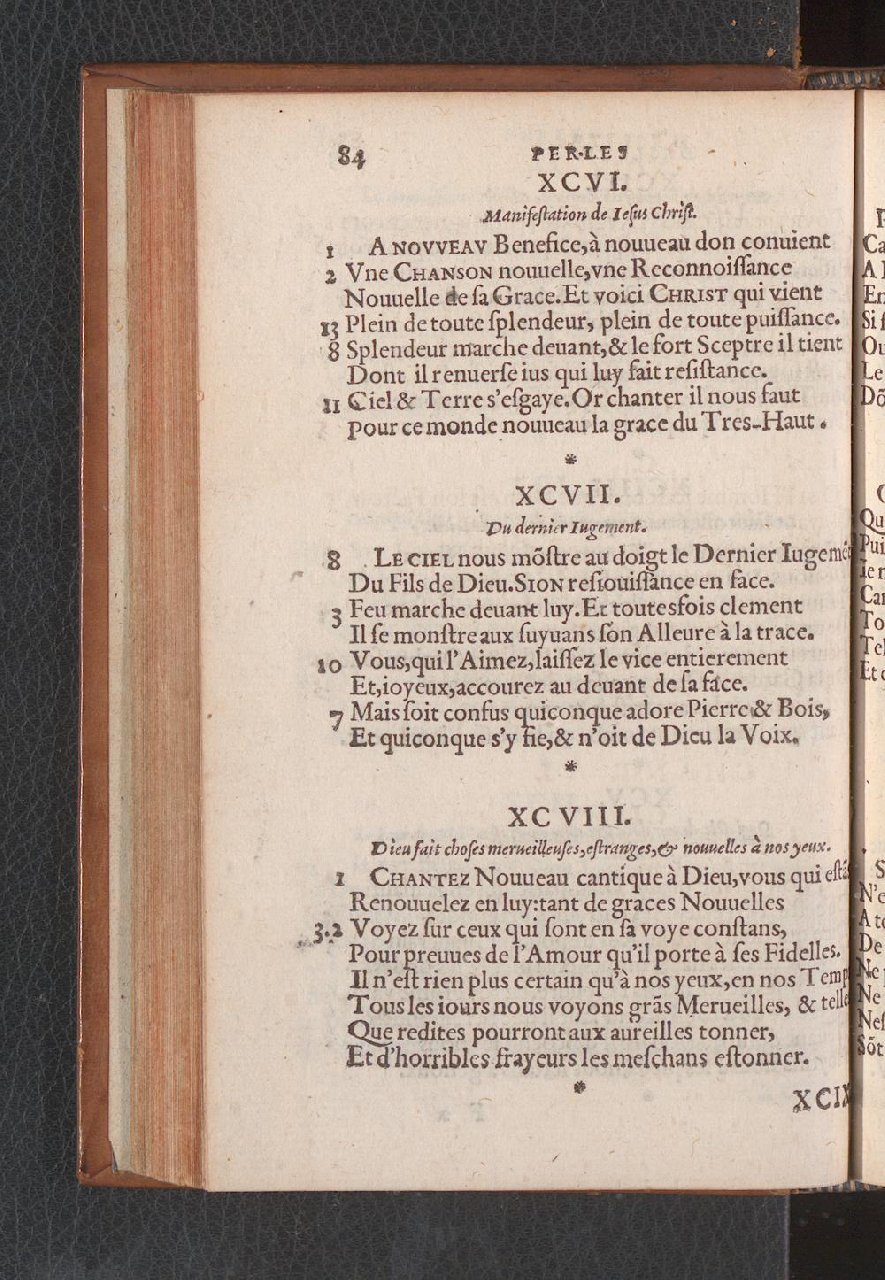 84 PERLES
XCVI.
Manifeſtation de Ieſus Chriſt.
1 A NOVVEAV Benefice, à nouueau don conuient
2 Vne CHANSON nouuelle, vne Reconnoiſſance
Nouuelle de ſa Grace. Et voici CHRIST qui vient
13 Plein de toute ſplendeur, plein de toute puiſſance.
8 Splendeur marche deuant, & le fort Sceptre il tient
Dont il renuerſe ius qui luy fait reſiſtance.
11 Ciel & Terre s'eſgaye. Or chanter il nous faut
pour ce monde nouueau la grace du Tres-Haut.
*
XCVII.
Du dernier Iugement.
8 LE CIEL nous mõſtre au doigt le Dernier Iugemẽ
Du Fils de Dieu. SION reſiouiſſance en face.
3 Feu marche deuant luy. Et toutesfois clement
Il ſe monſtre aux ſuyuans ſon Alleure à la trace.
10 Vous, qui l'Aimez, laiſſez le vice entierement
Et, ioyeux, accourez au deuant de ſa face.
7 Mais ſoit confus quiconque adore Pierre & Bois,
Et quiconque s'y fie, & n'oit de Dieu la Voix.
*
XCVIII.
Dieu fait choſes merueilleuſes, eſtranges, & nouuelles à nos yeux.
1 CHANTEZ Nouueau cantique à Dieu, vous qui eſtã
Renouuelez en luy: tant de graces Nouuelles
3.2 Voyez ſur ceux qui ſont en ſa voye conſtans,
Pour preuues de l'Amour qu'il porte à ſes Fidelles.
Il n'eſt rien plus certain qu'à nos yeux, en nos Temp
Tous les iours nous voyons grãs Merueilles, & telle
Que redites pourront aux aureilles tonner,
Et d'horribles frayeurs les meſchans eſtonner.
*
XCIX
Ca
A
En
Si
Ou
Le
Dõ
Qu
Pui
Ie
Car
To
Tel
Et
N'e
A
De
Ne
Ne
Neſ
Sõt